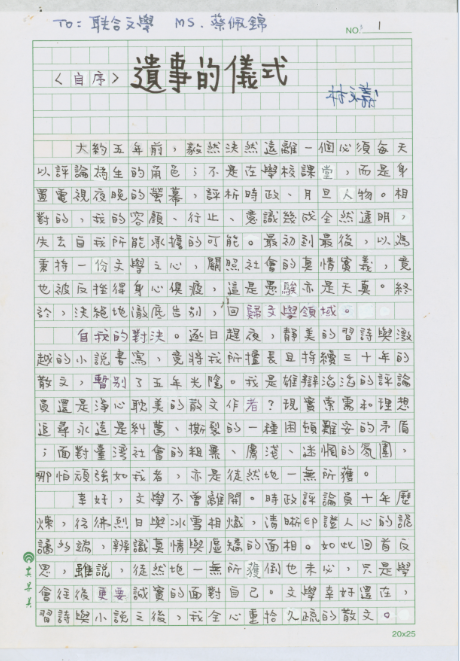 TO: 聯合文學 MS. 蔡佩錦
NO. 1
〈自序〉 遺事的儀式
林文義
大約五年前，毅然決然遠離一個必須每天
以評論為生的角色；不是在學校課堂，而是身
置電視夜晚的螢幕，評析時政、月旦人物。相
對的，我的容顏、行止、意識幾成全然透明，
失去自我所能承擔的可能。最初到最後，以為
秉持一份文學之心，關照社會的真情實義，竟
也被反挫得身心俱疲，這是愚騃亦是天真。終
於，決絕地徹底告別，回歸文學領域。
自我的對決。逐日趕夜，靜美的習詩與激
越的小說書寫，竟將我所擅長且持續三十年的
散文，暫別了五年光陰。我是雄辯滔滔的評論
員還是淨心耽美的散文作者？現實索需和理想
追尋永遠是糾葛、撕裂的一種困頓難安的矛盾
；面對臺灣社會的粗暴、膚淺、迷惘的氛圍，
哪怕頑強如我者，亦是徒然地一無所獲。
幸好，文學不曾離開。時政評論員十年歷
煉，往往烈日與冰雪相熾，清晰印證人心的詭
譎外端，辨識真情與虛矯的面相。如此回首反
思，雖說，徒然地一無所獲倒也未必，只是學
會往後更要誠實的面對自己。文學幸好還在，
習詩與小說之後，我全心重拾久疏的散文。
20x25